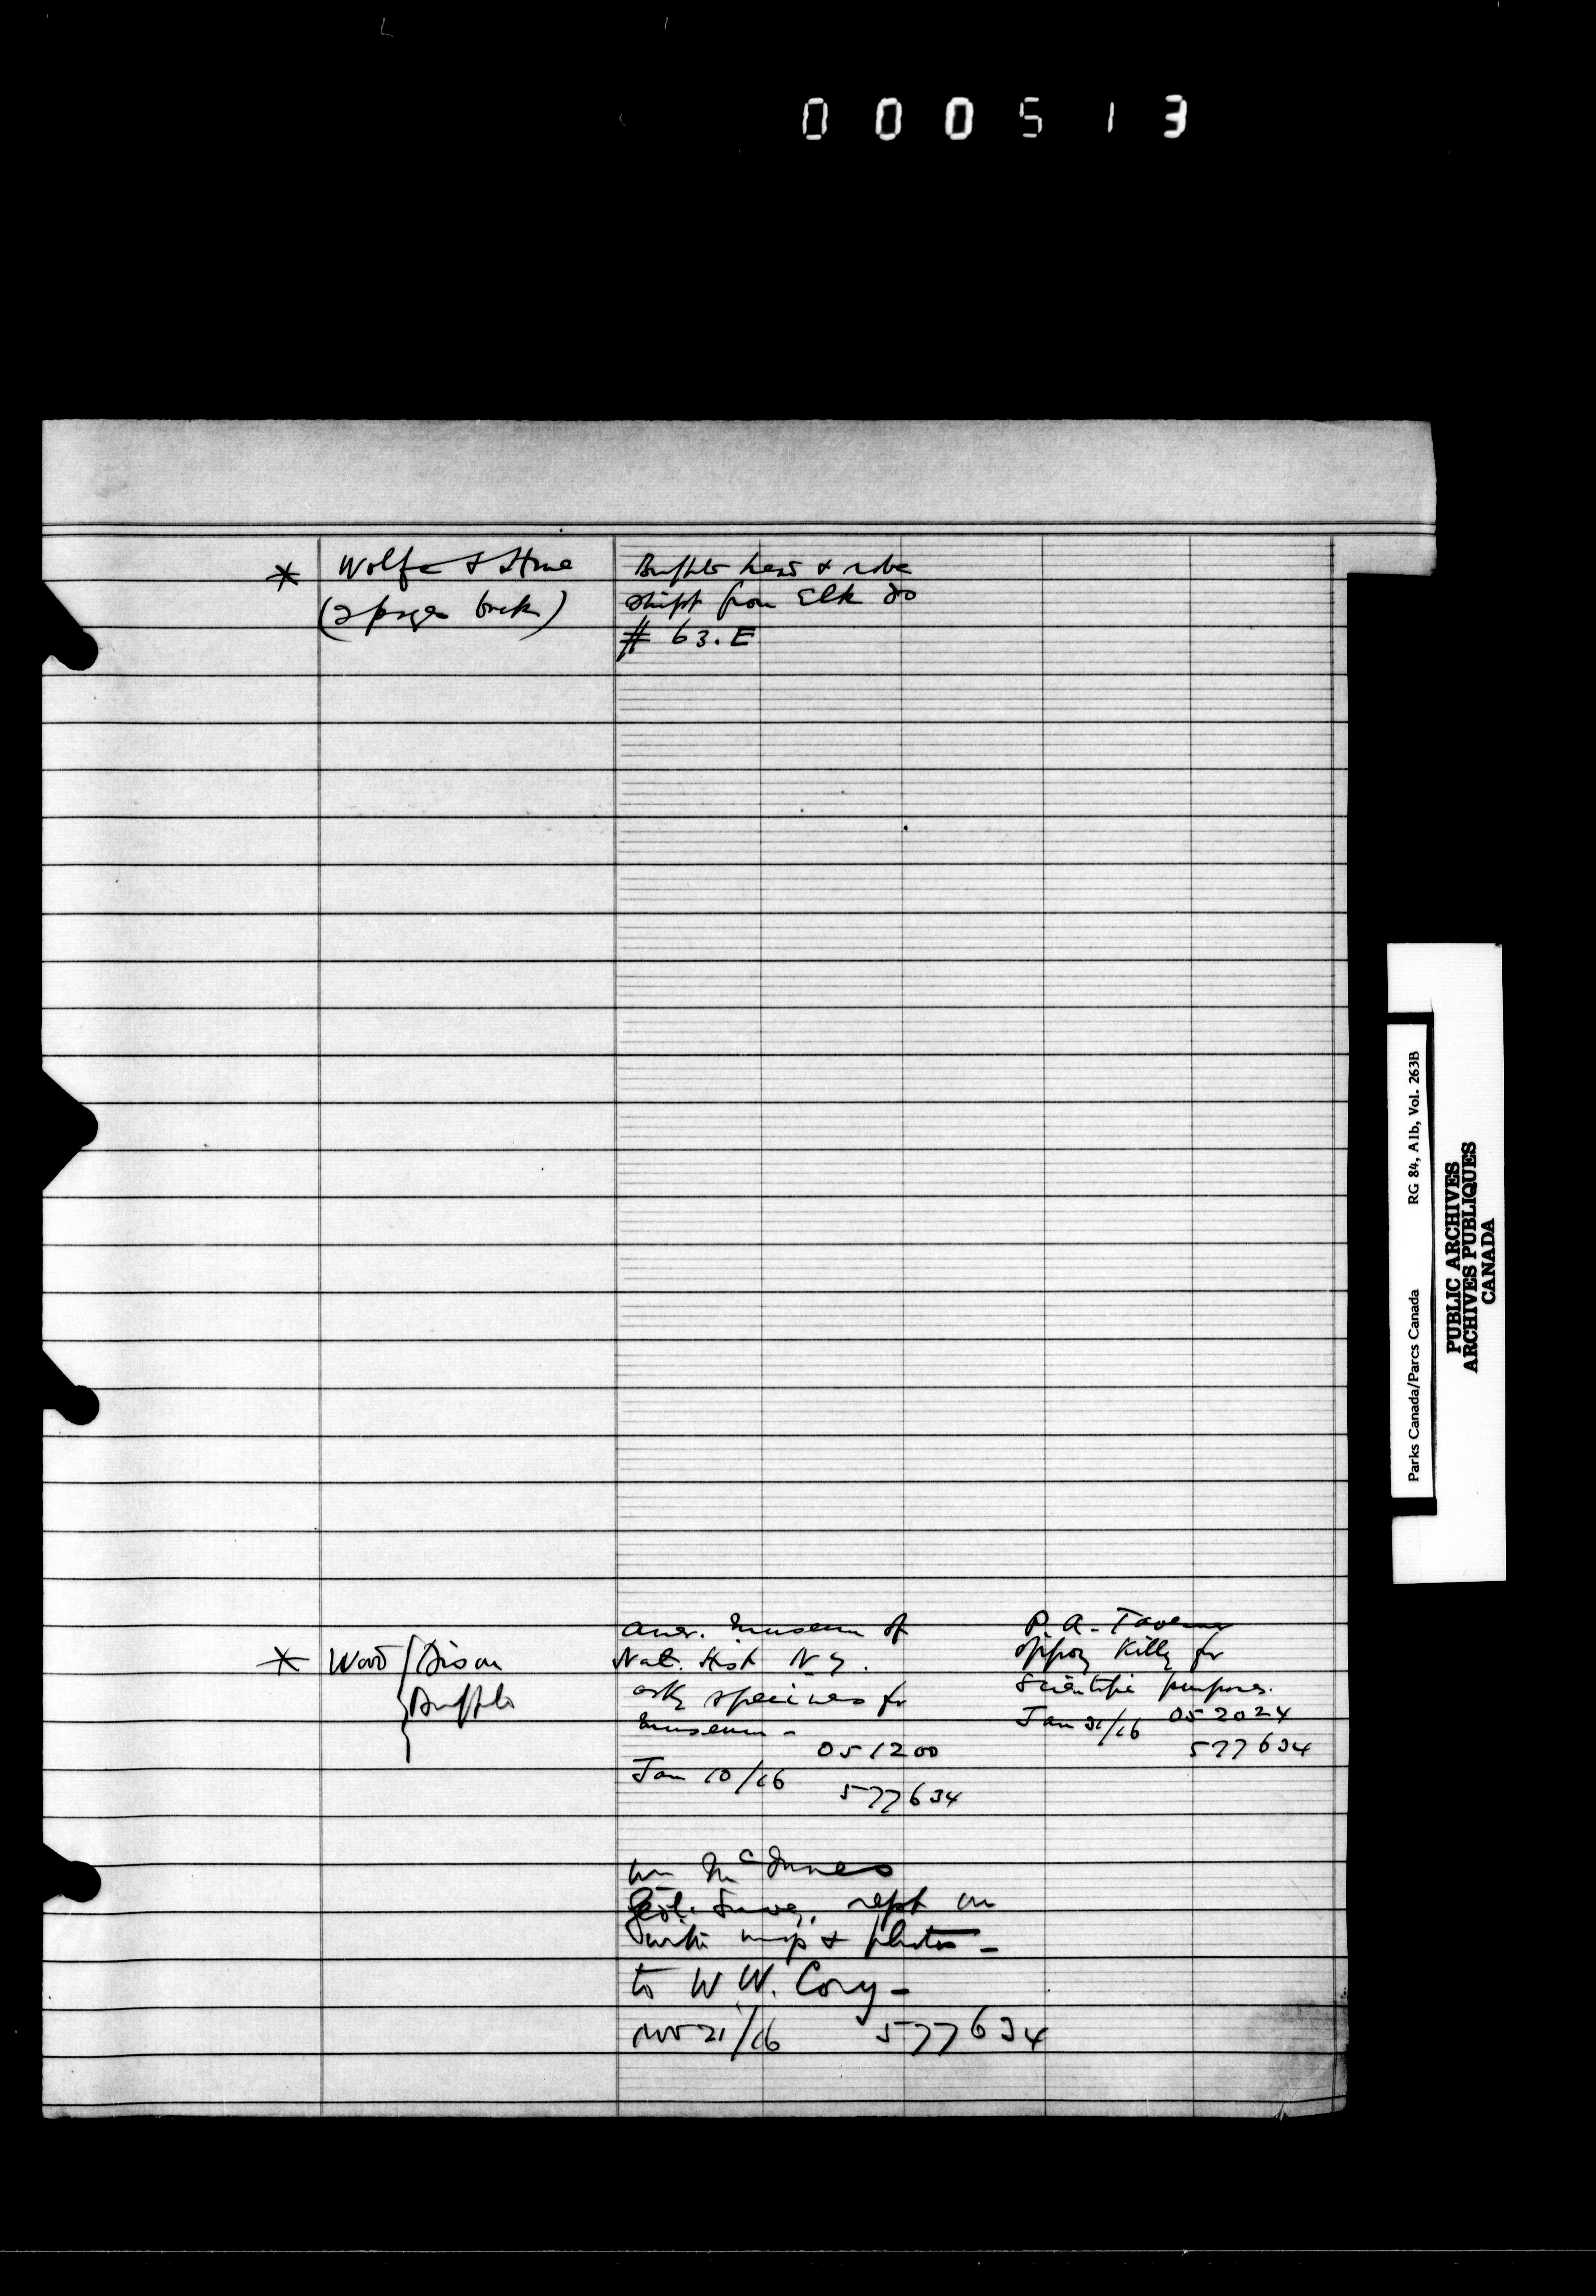 000513
* Wolfe &
(2 pages back)
Buffalo head & robe
shipt from Elk
# 63.E
* Wood { Bison
Buffalo
Amer. Museum of
Nat. Hist N Y.
ask specimens for
museum -
051200
Jan 10/16
577634
P. A. Taverner
opposg killg for
scientific purposes.
Jan 31/16 052024
577634
Wm McInnes
Geol. Survey, rept on
with map & photos -
to W W. Cory -
Nov 21/16 577634
Parks Canada/Parcs Canada RG 84, A1b, Vol. 263B
PUBLIC ARCHIVES
ARCHIVES PUBLIQUES
CANADA